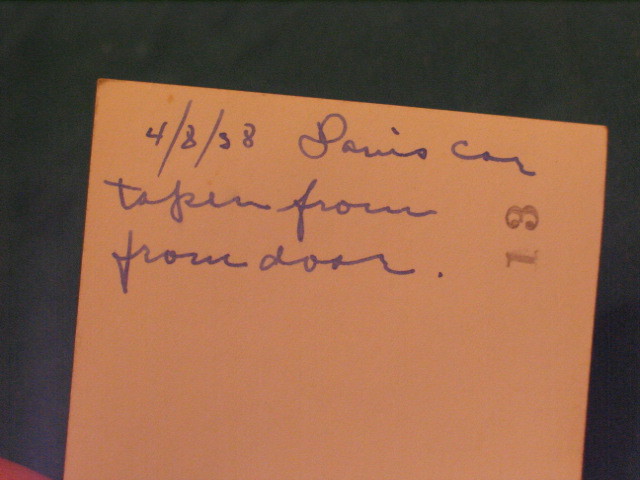 4/8/38 Davis car
taken from
from door.
19